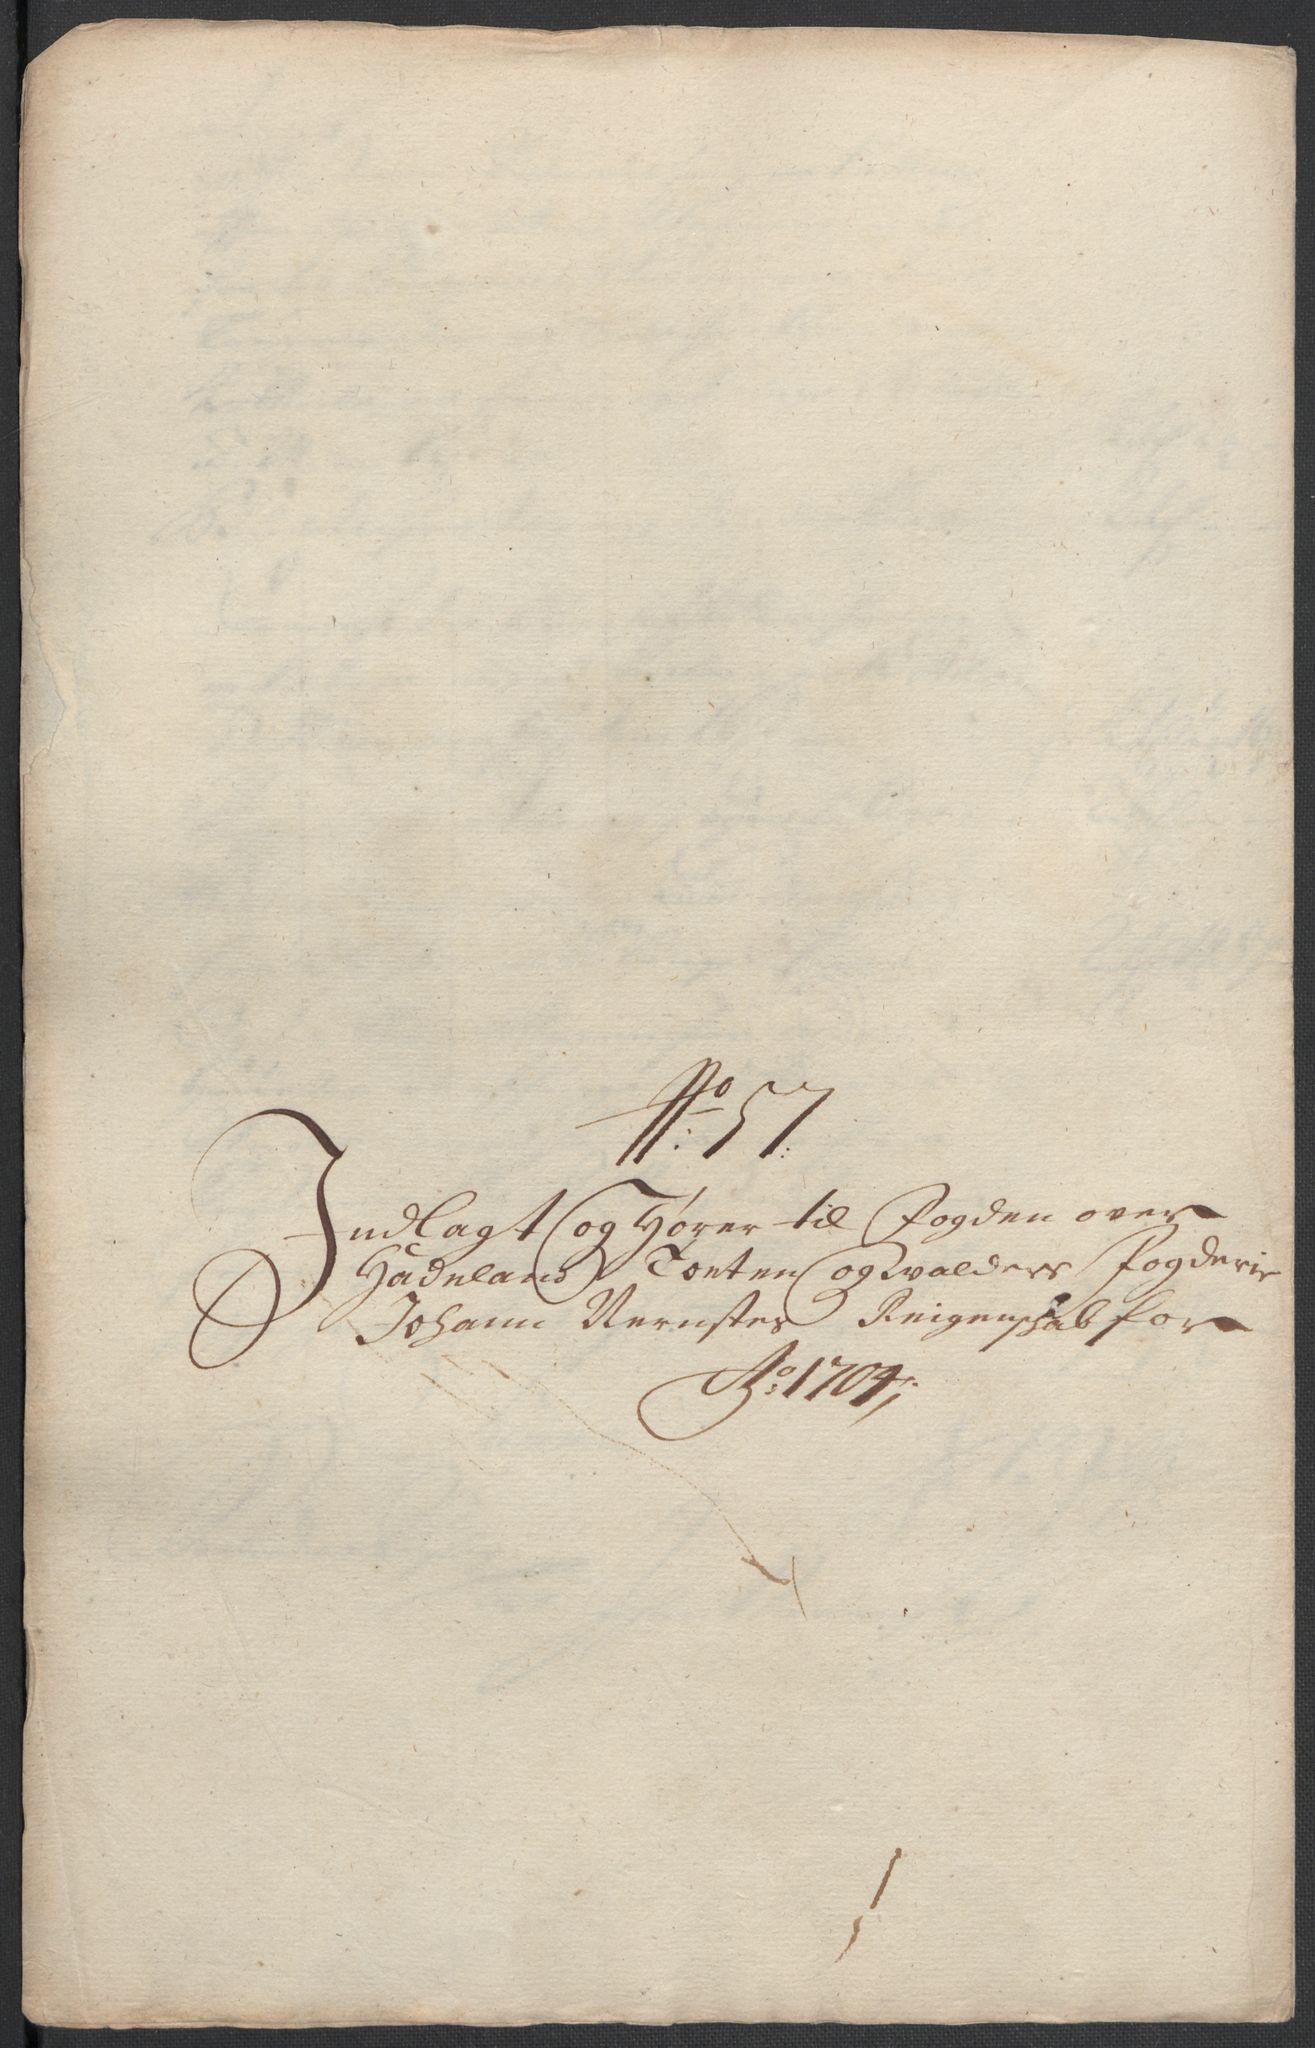 No: 57.
Indlagt og Hører til Fogden over
Hadeland Toten og Valders Fogderie
Johann Rernstes Reigenskab for
Ao: 1704,